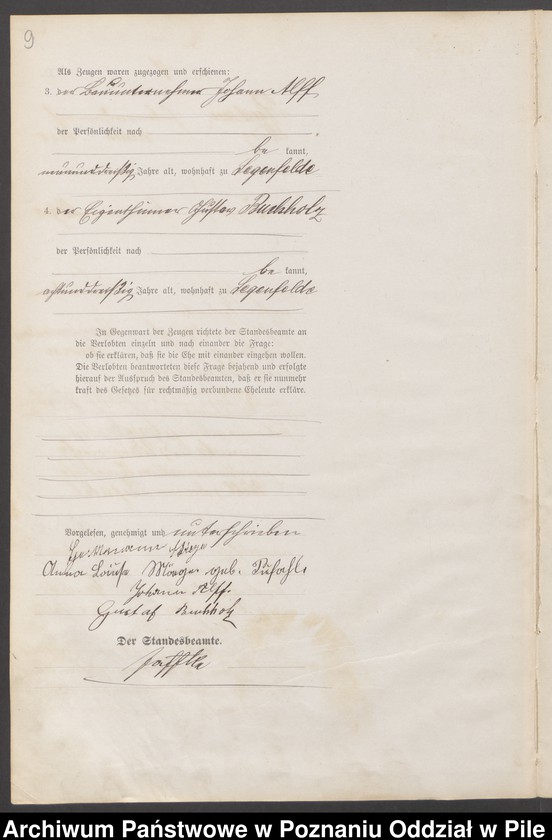 9
Als Zeugen waren zugezogen und erschienen:
3. der Bauunternehmer Johann Alff
der Persönlichkeit nach
be kannt,
neununddreißig Jahre alt, wohnhaft zu Segenfelde
4. der Eigenthümer Gustav Buchholz
der Persönlichkeit nach
be kannt,
achtunddreißig Jahre alt, wohnhaft zu Segenfelde
In Gegenwart der Zeugen richtete der Standesbeamte an
die Verlobten einzeln und nach einander die Frage:
ob sie erklären, daß sie die Ehe mit einander eingehen wollen.
Die Verlobten beantworteten diese Frage bejahend und erfolgte
hierauf der Ausspruch des Standesbeamten, daß er sie nunmehr
kraft des Gesetzes für rechtmäßig verbundene Eheleute erkläre.
Vorgelesen, genehmigt und unterschrieben
Hermann
Anna Louise geb.
Johann Alff.
Gustaf Buchholz
Der Standesbeamte.
Archiwum Państwowe w Poznaniu Oddział w Pile